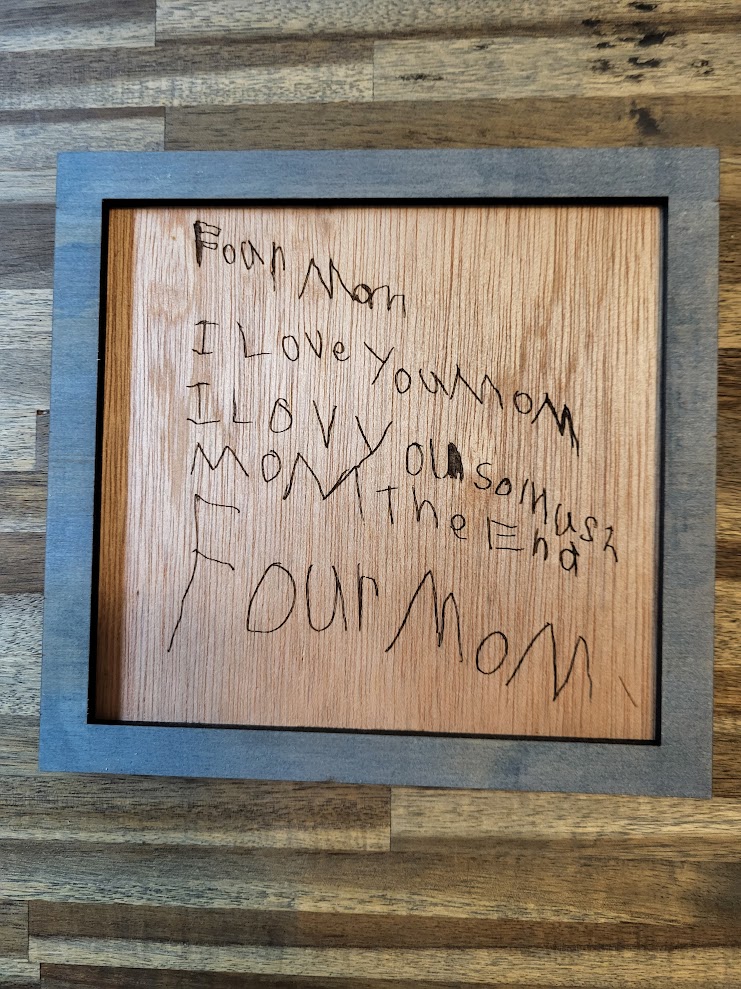 Four Mom
I Love you Mom
I LOV you so Mush
MOM The End
Four MoM